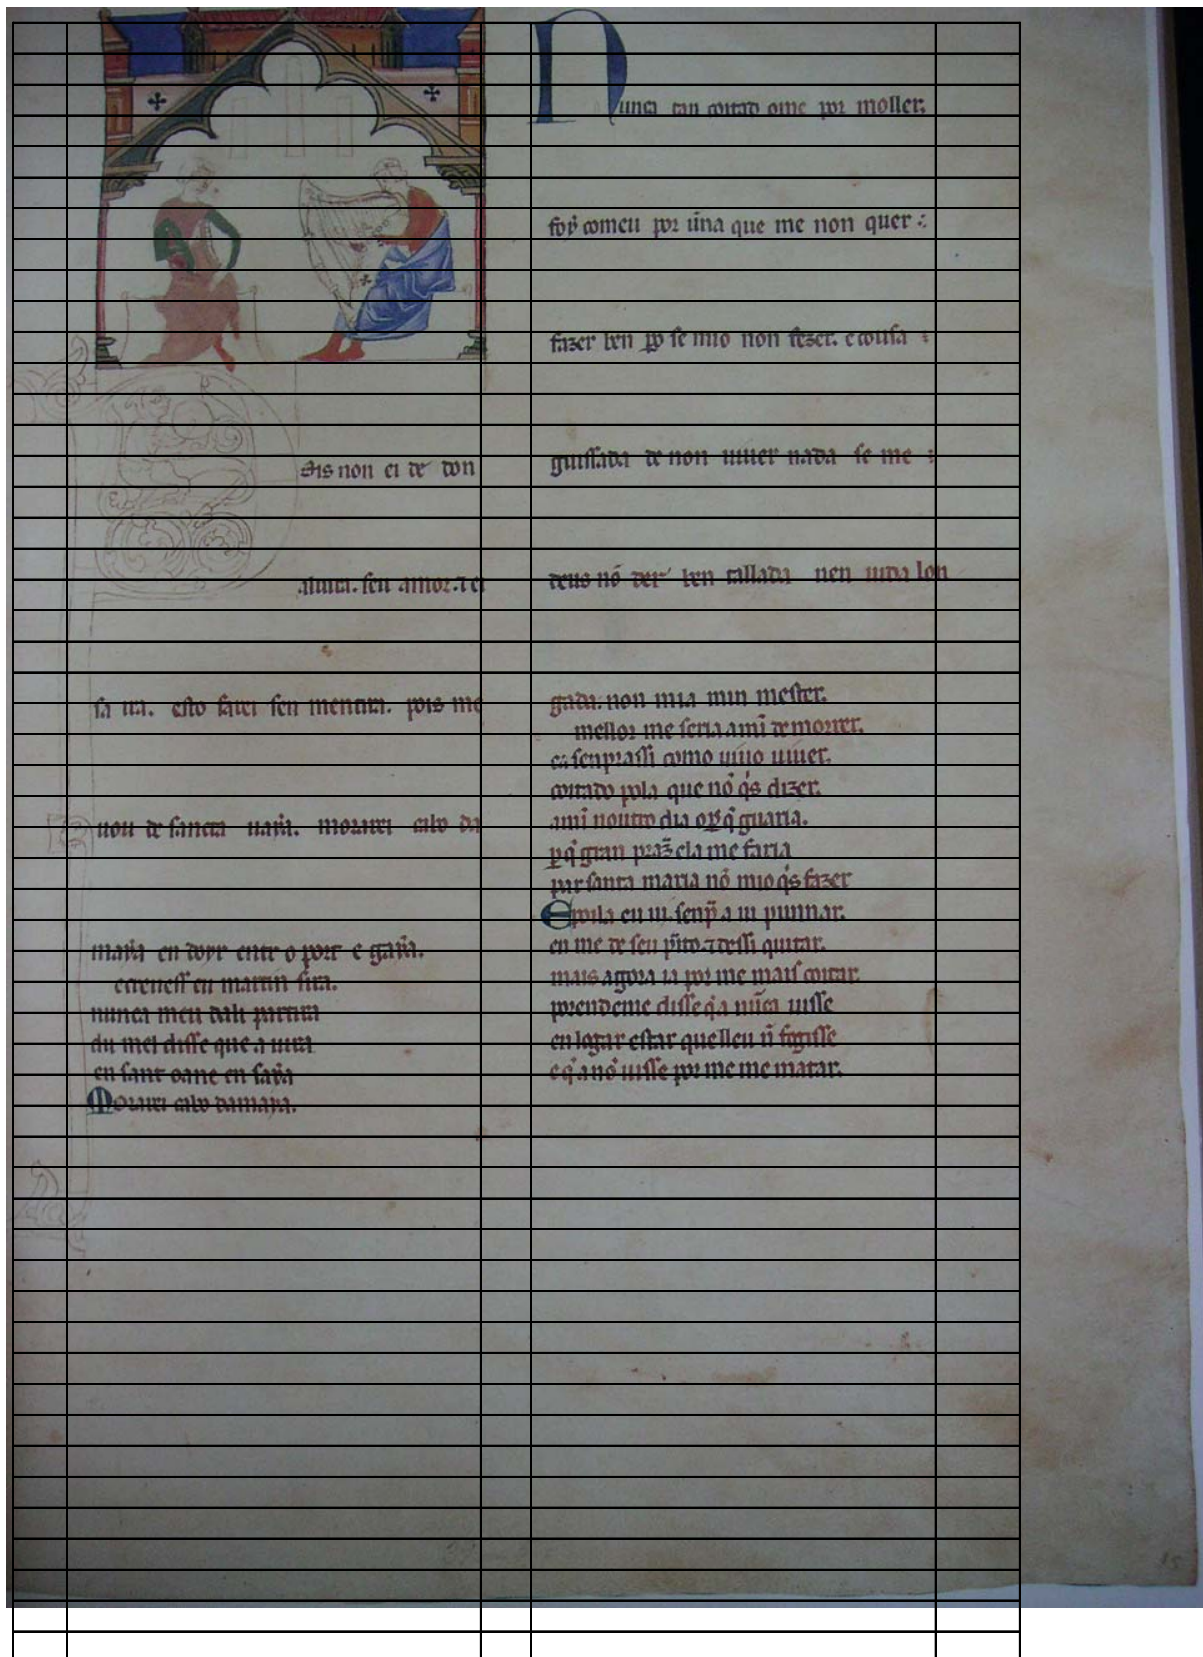 ois non ei de don
aluira. seu amor. ⁊ ei
sa ira. esto farei sen mentira. pois me
uou de sancta uaỹa. morarei cabo da
maỹa en doyr entr o port e gaỹa.
creuess eu martin sira.
nunca meu dali partira
du mel disse que a uira
en sant oane en saỹa
Morarei cabo damaỹa.
Nunca tan coitad ome por moller.
foỹ comeu por ũna que me non quer
fazer ben ꝑo se mio non fezer. e cousa
guissada de non uiuer nada se me
deus nõ der ben tallada nen uida lon
gada. non mia min mester.
mellor me seria amĩ de morrer.
ca senprassi como uiuo uiuer.
coitado pola que nõ q̇s dizer.
amĩ noutro dia
ꝑq̇ gran praz̃ ela me faria
par santa maria nõ mio q̇s fazer
E pola eu ui. senp̃ a ui punnar.
en me de seu p̃ito. ⁊ dessi quitar.
mais agora ia por me mais coitar.
prendeme disse q̇ a nũca uisse
en logar estar quelleu ñ fogisse
e q̇ a nõ uisse por me me matar.
15